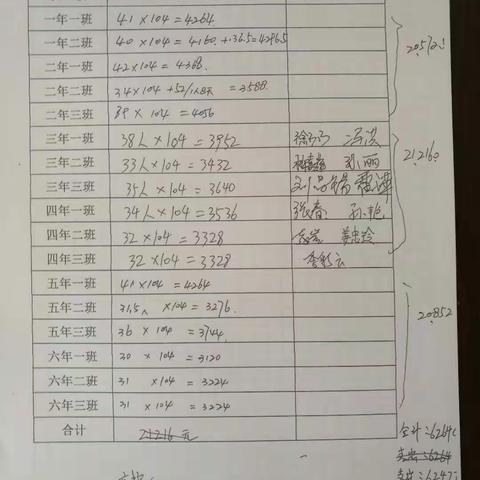 一年一班 41×104=4264
一年二班 40×104=4160.+136.5=4296.5
二年一班 42×104=4368.
二年二班 34×104+52/1人8天 =3588.
二年三班 39×104=4056
三年一班 38人×104=3952
三年二班 33人×104=3432 丽
三年三班 35人×104=3640
四年一班 34人×104=3536 张春 孙艳
四年二班 32×104=3328
四年三班 32×104=3328 李彩云
21,216.
五年一班 41×104=4264
五年二班 31.5人 ×104=3276.
五年三班 36×104=3744.
六年一班 30×104=3120
六年二班 31×104=3224
六年三班 31×104=3224
20852
合计 21216元
合计:6264
支出:6264
支出:6247